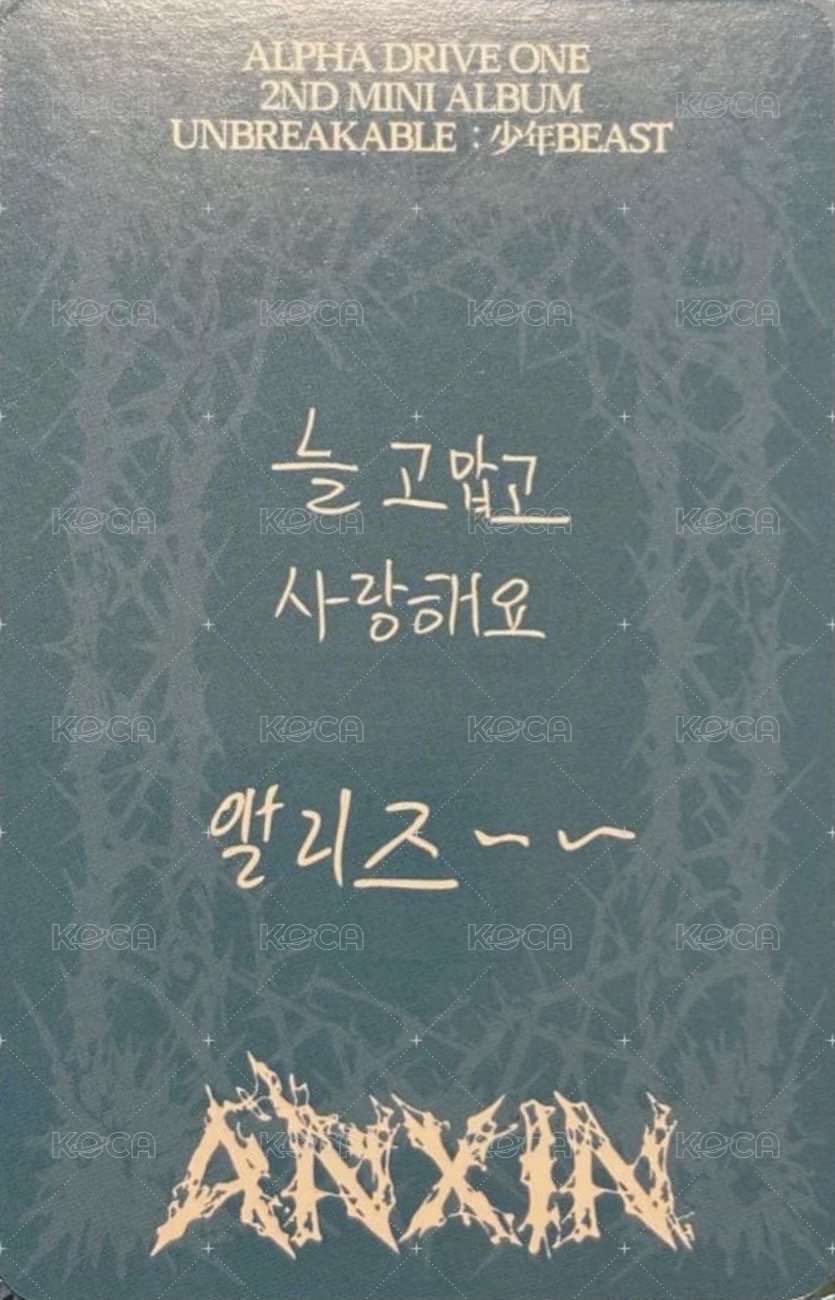 ALPHA DRIVE ONE
2ND MINI ALBUM
UNBREAKABLE : 少年BEAST
늘 고맙고
사랑해요
앨리즈~~
ANXIN
KOCA